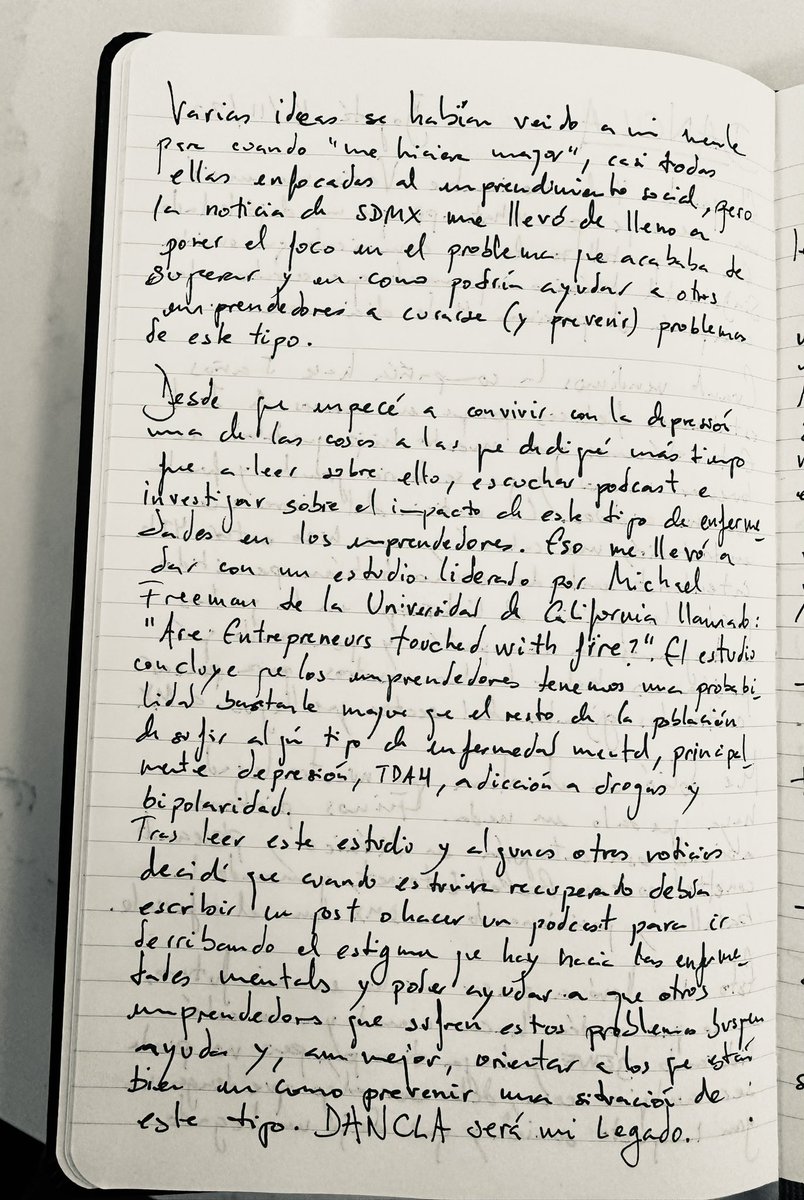 Varias ideas se habían venido a mi mente
para cuando "me hiciera mayor", casi todas
ellas enfocadas al emprendimiento social, pero
la noticia de SDMX me llevó de lleno a
poner el foco en el problema que acababa de
superar y en como podría ayudar a otros
emprendedores a curarse (y prevenir) problemas
de este tipo.
Desde que empecé a convivir con la depresión
una de las cosas a las que dediqué más tiempo
fue a leer sobre ello, escuchar podcast e
investigar sobre el impacto de este tipo de enferme-
dades en los emprendedores. Eso me llevó a
dar con un estudio liderado por Michael
Freeman de la Universidad de California llamado:
"Are Entrepreneurs touched with fire?". El estudio
concluye que los emprendedores tenemos una probabi-
lidad bastante mayor que el resto de la población
de sufrir algún tipo de enfermedad mental, principal-
mente depresión, TDAH, adicción a drogas y
bipolaridad.
Tras leer este estudio y algunas otras noticias
decidí que cuando estuviera recuperado debía
escribir un post o hacer un podcast para ir
derribando el estigma que hay hacia las enferme-
dades mentales y poder ayudar a que otros
emprendedores que sufren estos problemas busquen
ayuda y, aun mejor, orientar a los que están
bien en como prevenir una situación de
este tipo. DANCLA será mi legado.